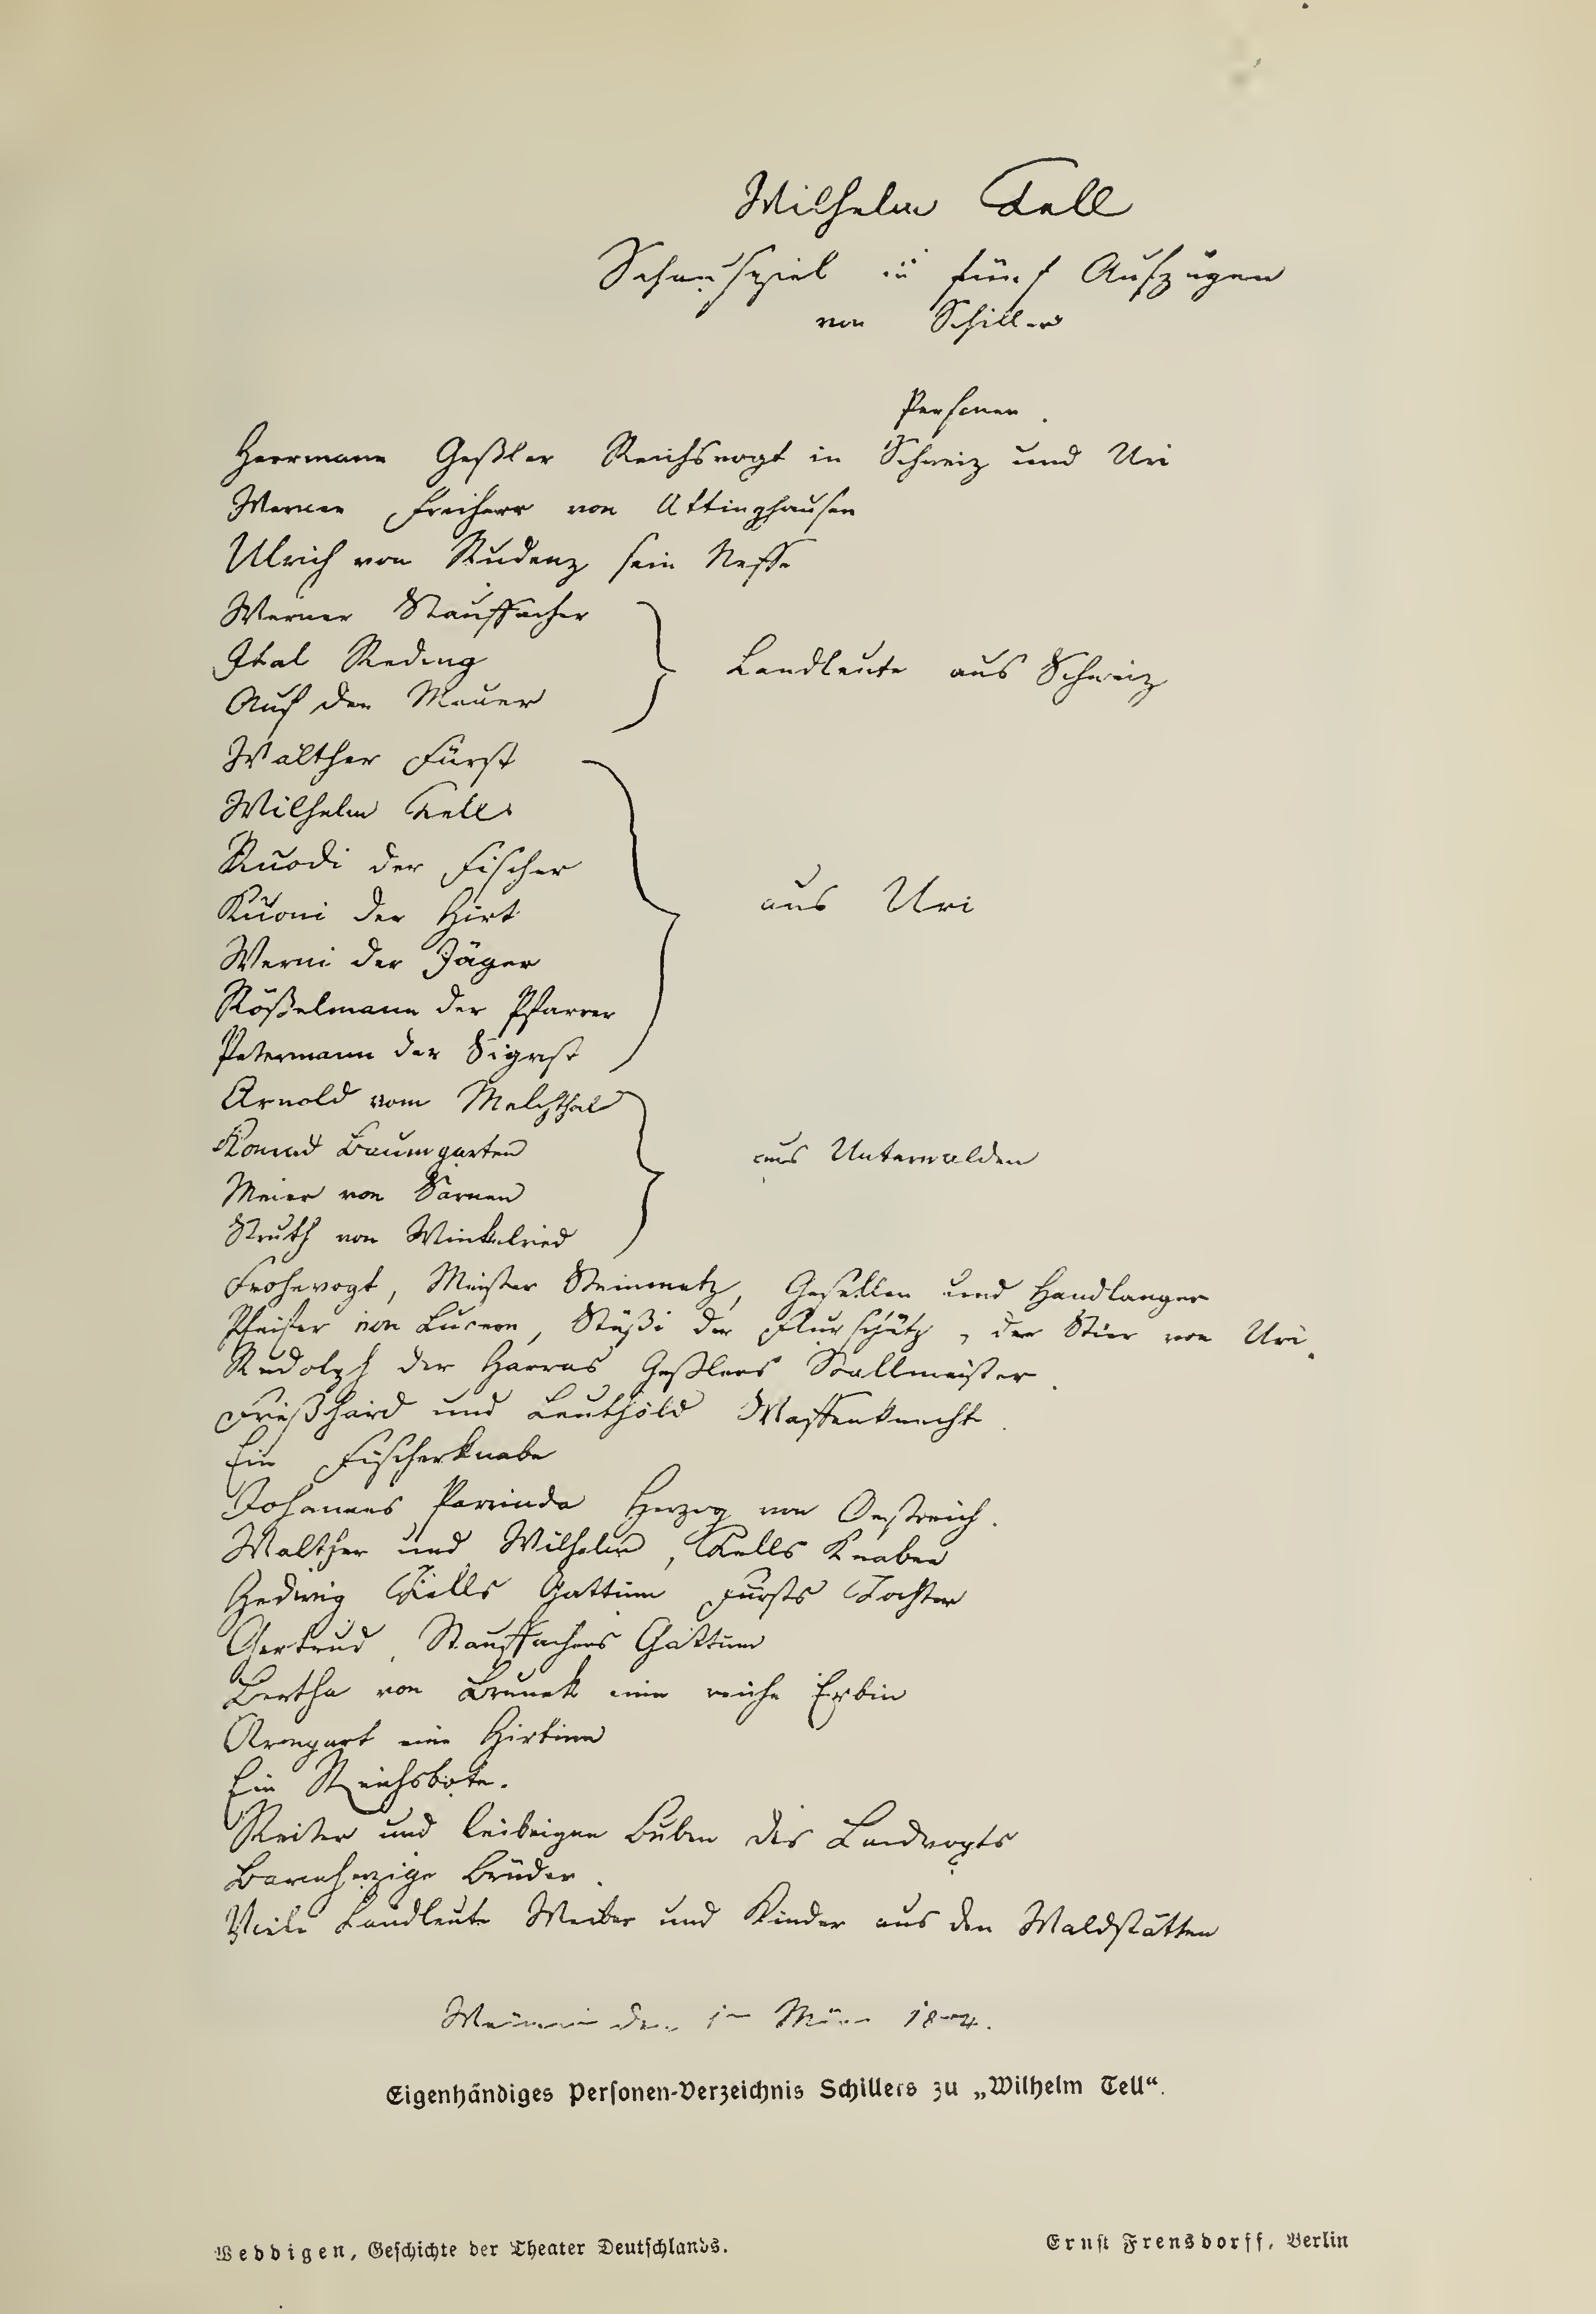 Wilhelm Tell
Schauspiel in fünf Aufzügen
von Schiller
Personen.
Herrmann Geßler Reichsvogt in Schweiz und Uri
Werner Freiherr von Attinghausen
Ulrich von Rudenz sein Neffe
Werner Stauffacher
Ital Reding
Auf der Mauer
Landleute aus Schweiz
Walther Fürst
Wilhelm Tell
Ruodi der Fischer
Kuoni der Hirt
Werni der Jäger
Rößelmann der Pfarrer
Petermann der Sigrist
aus Uri
Arnold vom Melchthal
Konrad Baumgarten
Meier von Sarnen
Struth von Winkelried
aus Unterwalden
Frohnvogt, Meister Steinmetz, Gesellen und Handlanger
Pfeiffer von Lucern, Stüßi der Flurschütz, der Stier von Uri.
Rudolph der Harras Geßlers Stallmeister.
Frießhard und Leuthold Waffenknechte.
Ein Fischerknabe
Johannes Parricida Herzog von Oestreich.
Walther und Wilhelm, Tells Knaben
Hedwig Tells Gattinn Fürsts Tochter
Gertrud, Stauffachers Gattinn
Bertha von Bruneck eine reiche Erbin
Armgart eine Hirtinn
Ein Reichsbote.
Reiter und leibeigene Buben des Landvogts
Barmherzige Brüder.
Viele Landleute Weiber und Kinder aus den Waldstätten
Weimar den 1 März 1804.
Eigenhändiges Personen-Verzeichnis Schillers zu „Wilhelm Tell“.
Weddigen, Geschichte der Theater Deutschlands.
Ernst Frensdorff, Berlin